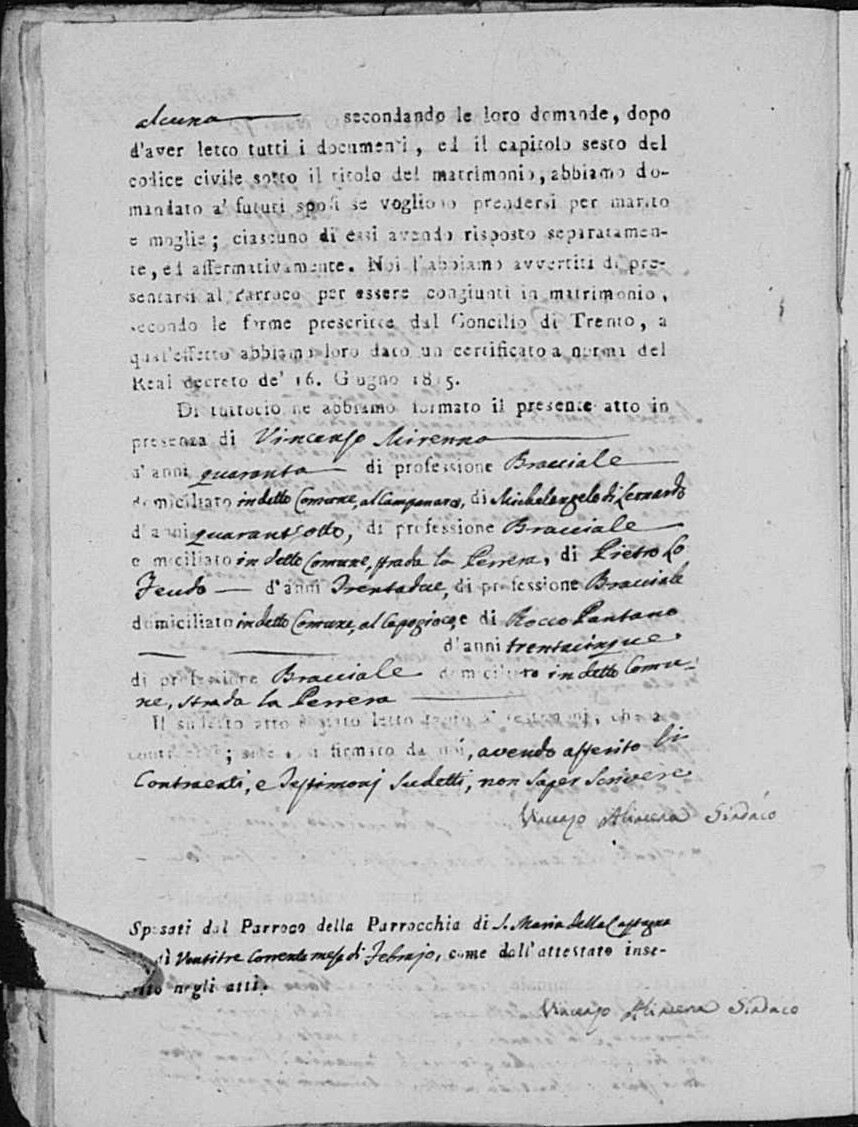 alcuna secondando le loro domande, dopo
d'aver letto tutti i documenti, ed il capitolo sesto del
codice civile sotto il titolo del matrimonio, abbiamo do-
mandato a' futuri sposi se vogliono prendersi per marito
e moglie; ciascuno di essi avendo risposto separatamen-
te, ed affermativamente. Noi l'abbiamo avvertiti di pre-
sentarsi al Parroco per essere congiunti in matrimonio,
secondo le forme prescritte dal Concilio di Trento, a
qual'effetto abbiamo loro dato un certificato a norma del
Real decreto de' 16. Giugno 1815.
Di tuttociò ne abbiamo formato il presente atto in
presenza di Vincenzo Mirenna
d'anni quaranta di professione Bracciale
domiciliato in detto Comune, al Campanaro, di Michelangelo di Leonardo
d'anni quarant'otto, di professione Bracciale
domiciliato in detto Comune, strada la Perrera, di Pietro Lo
Feudo d'anni Trentadue, di professione Bracciale
domiciliato in detto Comune, al e di Rocco Pantano
d'anni trentacinque
di professione Bracciale domiciliato in detto Comu-
ne, strada la Perrera
Il sudetto atto è stato letto tanto a' testimonj, che a'
contraenti; firmato da noi, avendo asserito li
Contraenti, e Testimonj sudetti, non saper scrivere
Vincenzo Alimena Sindaco
Sposati dal Parroco della Parrocchia di S. Maria della Castagna
dì Ventitre Corrente mese di Febrajo, come dall'attestato inse-
rito negli atti.
Vincenzo Alimena Sindaco